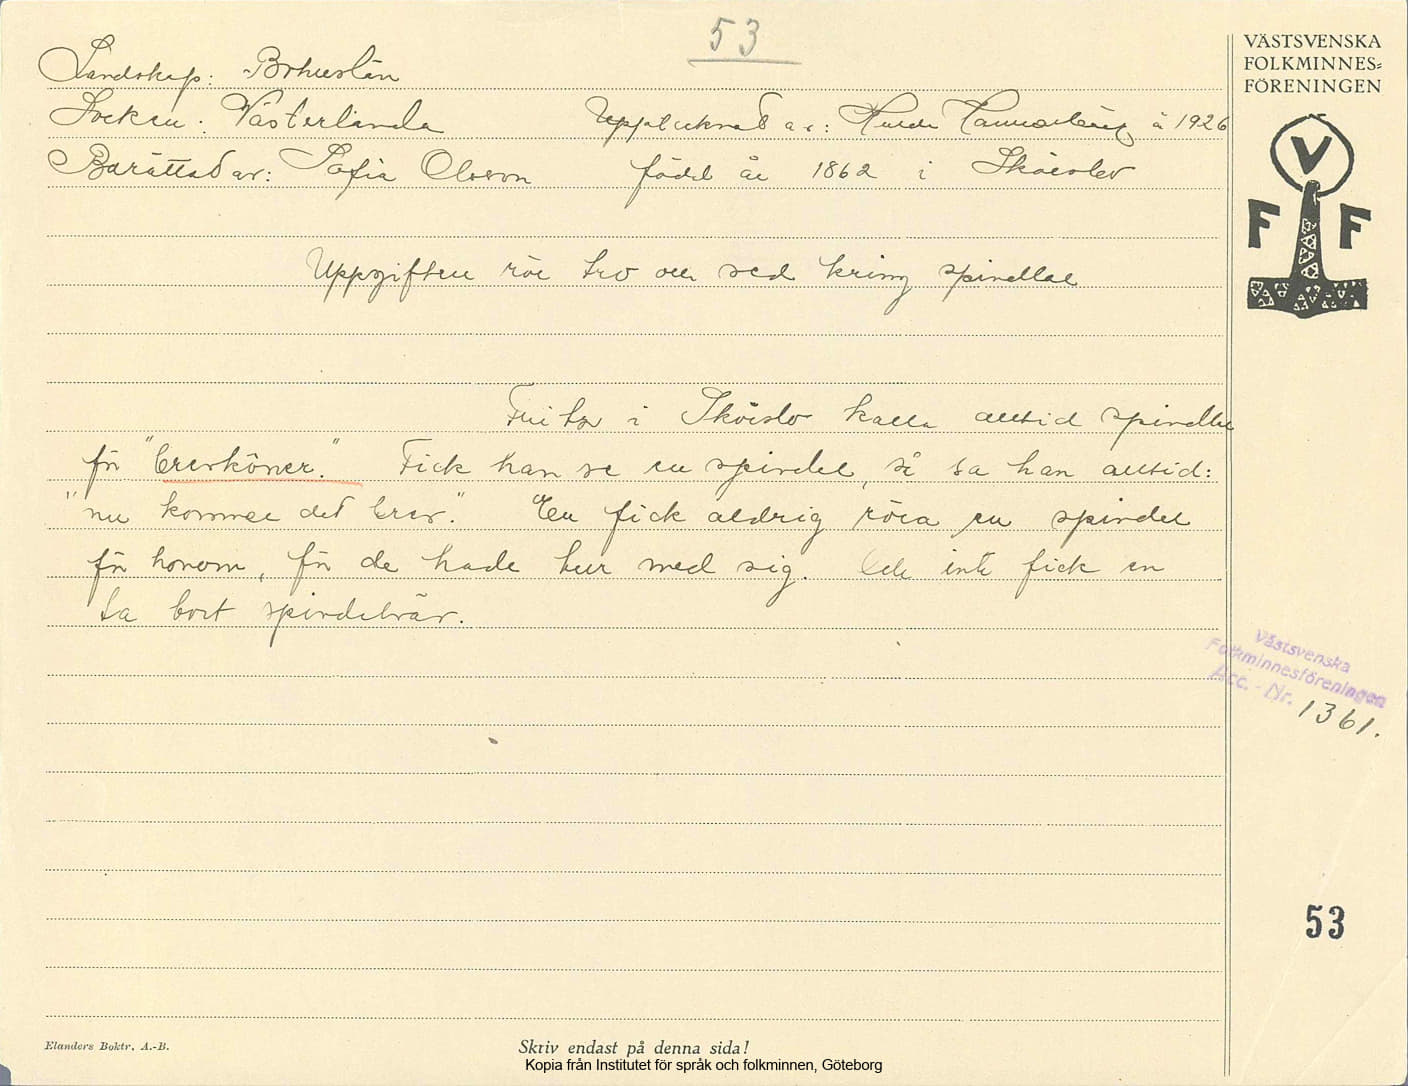 53
Landskap: Bohuslän
Socken: Västerlanda Upptecknad av: Hulda Hammarberg å 1926
Berättad av: Sofia Olsson född år 1862 i
Uppgiften rör tro och sed kring spindlar
i kalla alltid spindlar
för "brevköner." Fick han se en spindel, så sa han alltid:
"nu kommer det brev." En fick aldrig röra en spindel
för honom, för de hade tur med sig. Och inte fick en
ta bort spindelväv.
VÄSTSVENSKA
FOLKMINNES=
FÖRENINGEN
V
F F
Västsvenska
Folkminnesföreningen
Acc. - Nr. 1361.
53
Elanders Boktr. A.-B.
Skriv endast på denna sida!
Kopia från Institutet för språk och folkminnen, Göteborg